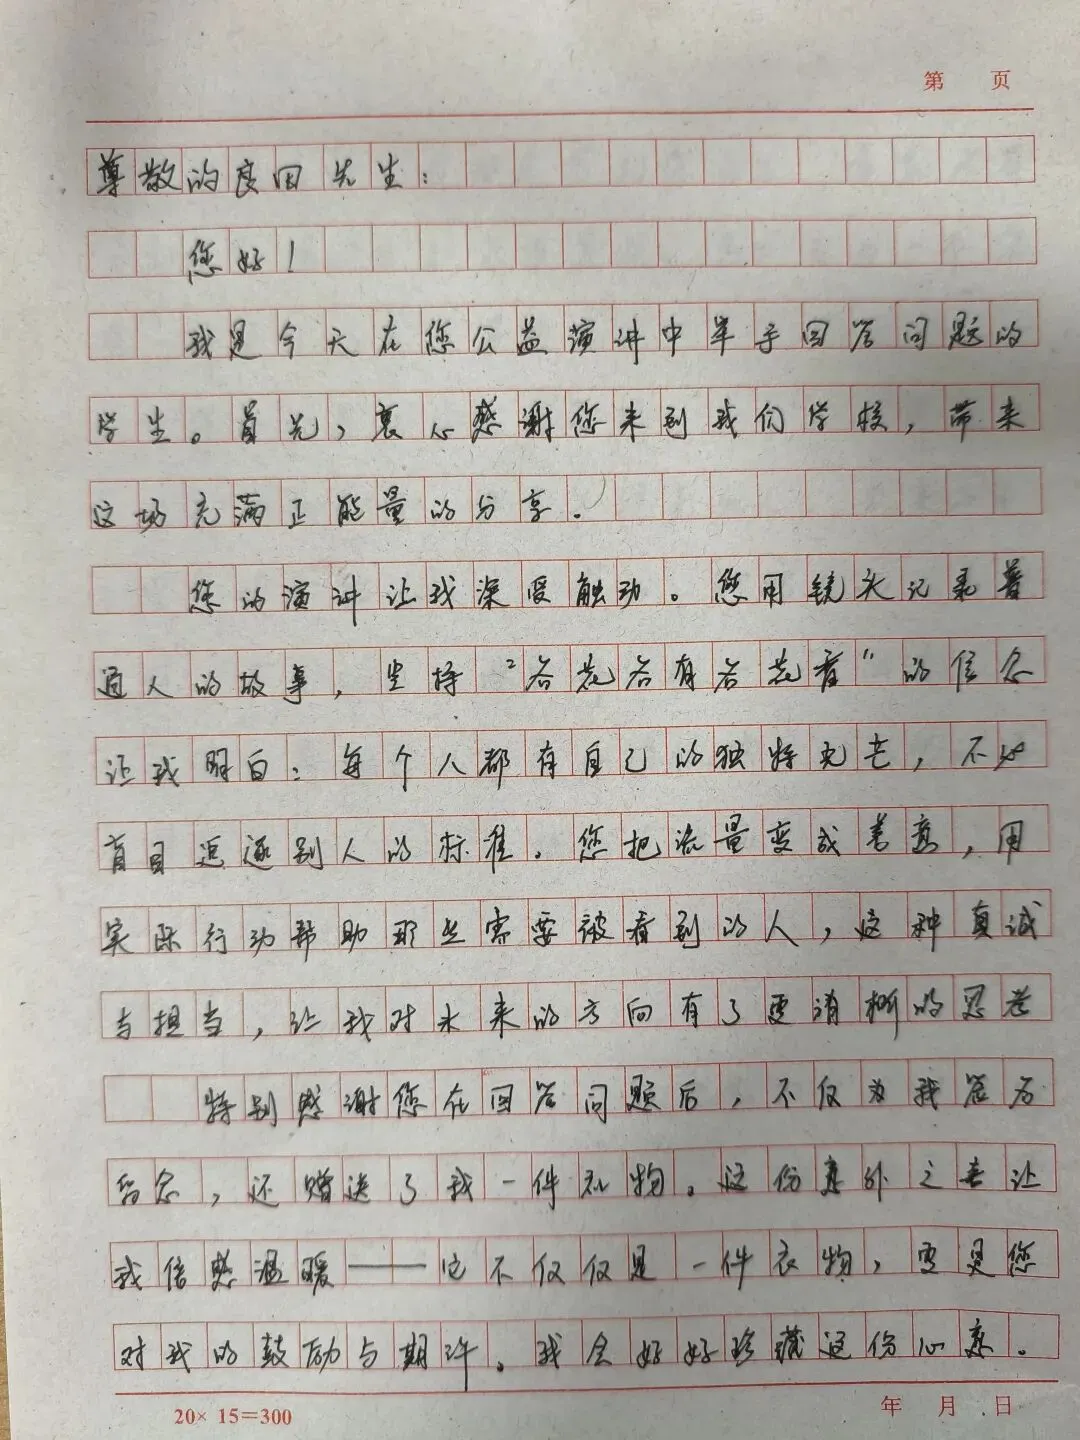 第 页
尊敬的良田先生：
您好！
我是今天在您公益演讲中举手回答问题的
学生。首先，衷心感谢您来到我们学校，带来
这场充满正能量的分享。
您的演讲让我深受触动。您用镜头记录普
通人的故事，坚持“各花各有各花香”的信念
让我明白：每个人都有自己的独特光芒，不必
盲目追逐别人的标准。您把流量变成善意，用
实际行动帮助那些需要被看到的人，这种真诚
与担当，让我对未来的方向有了更清晰的思考
特别感谢您在回答问题后，不仅为我签名
留念，还赠送了我一件礼物。这份意外之喜让
我倍感温暖——它不仅仅是一件衣物，更是您
对我的鼓励与期许。我会好好珍藏这份心意。
20×15=300 年 月 日